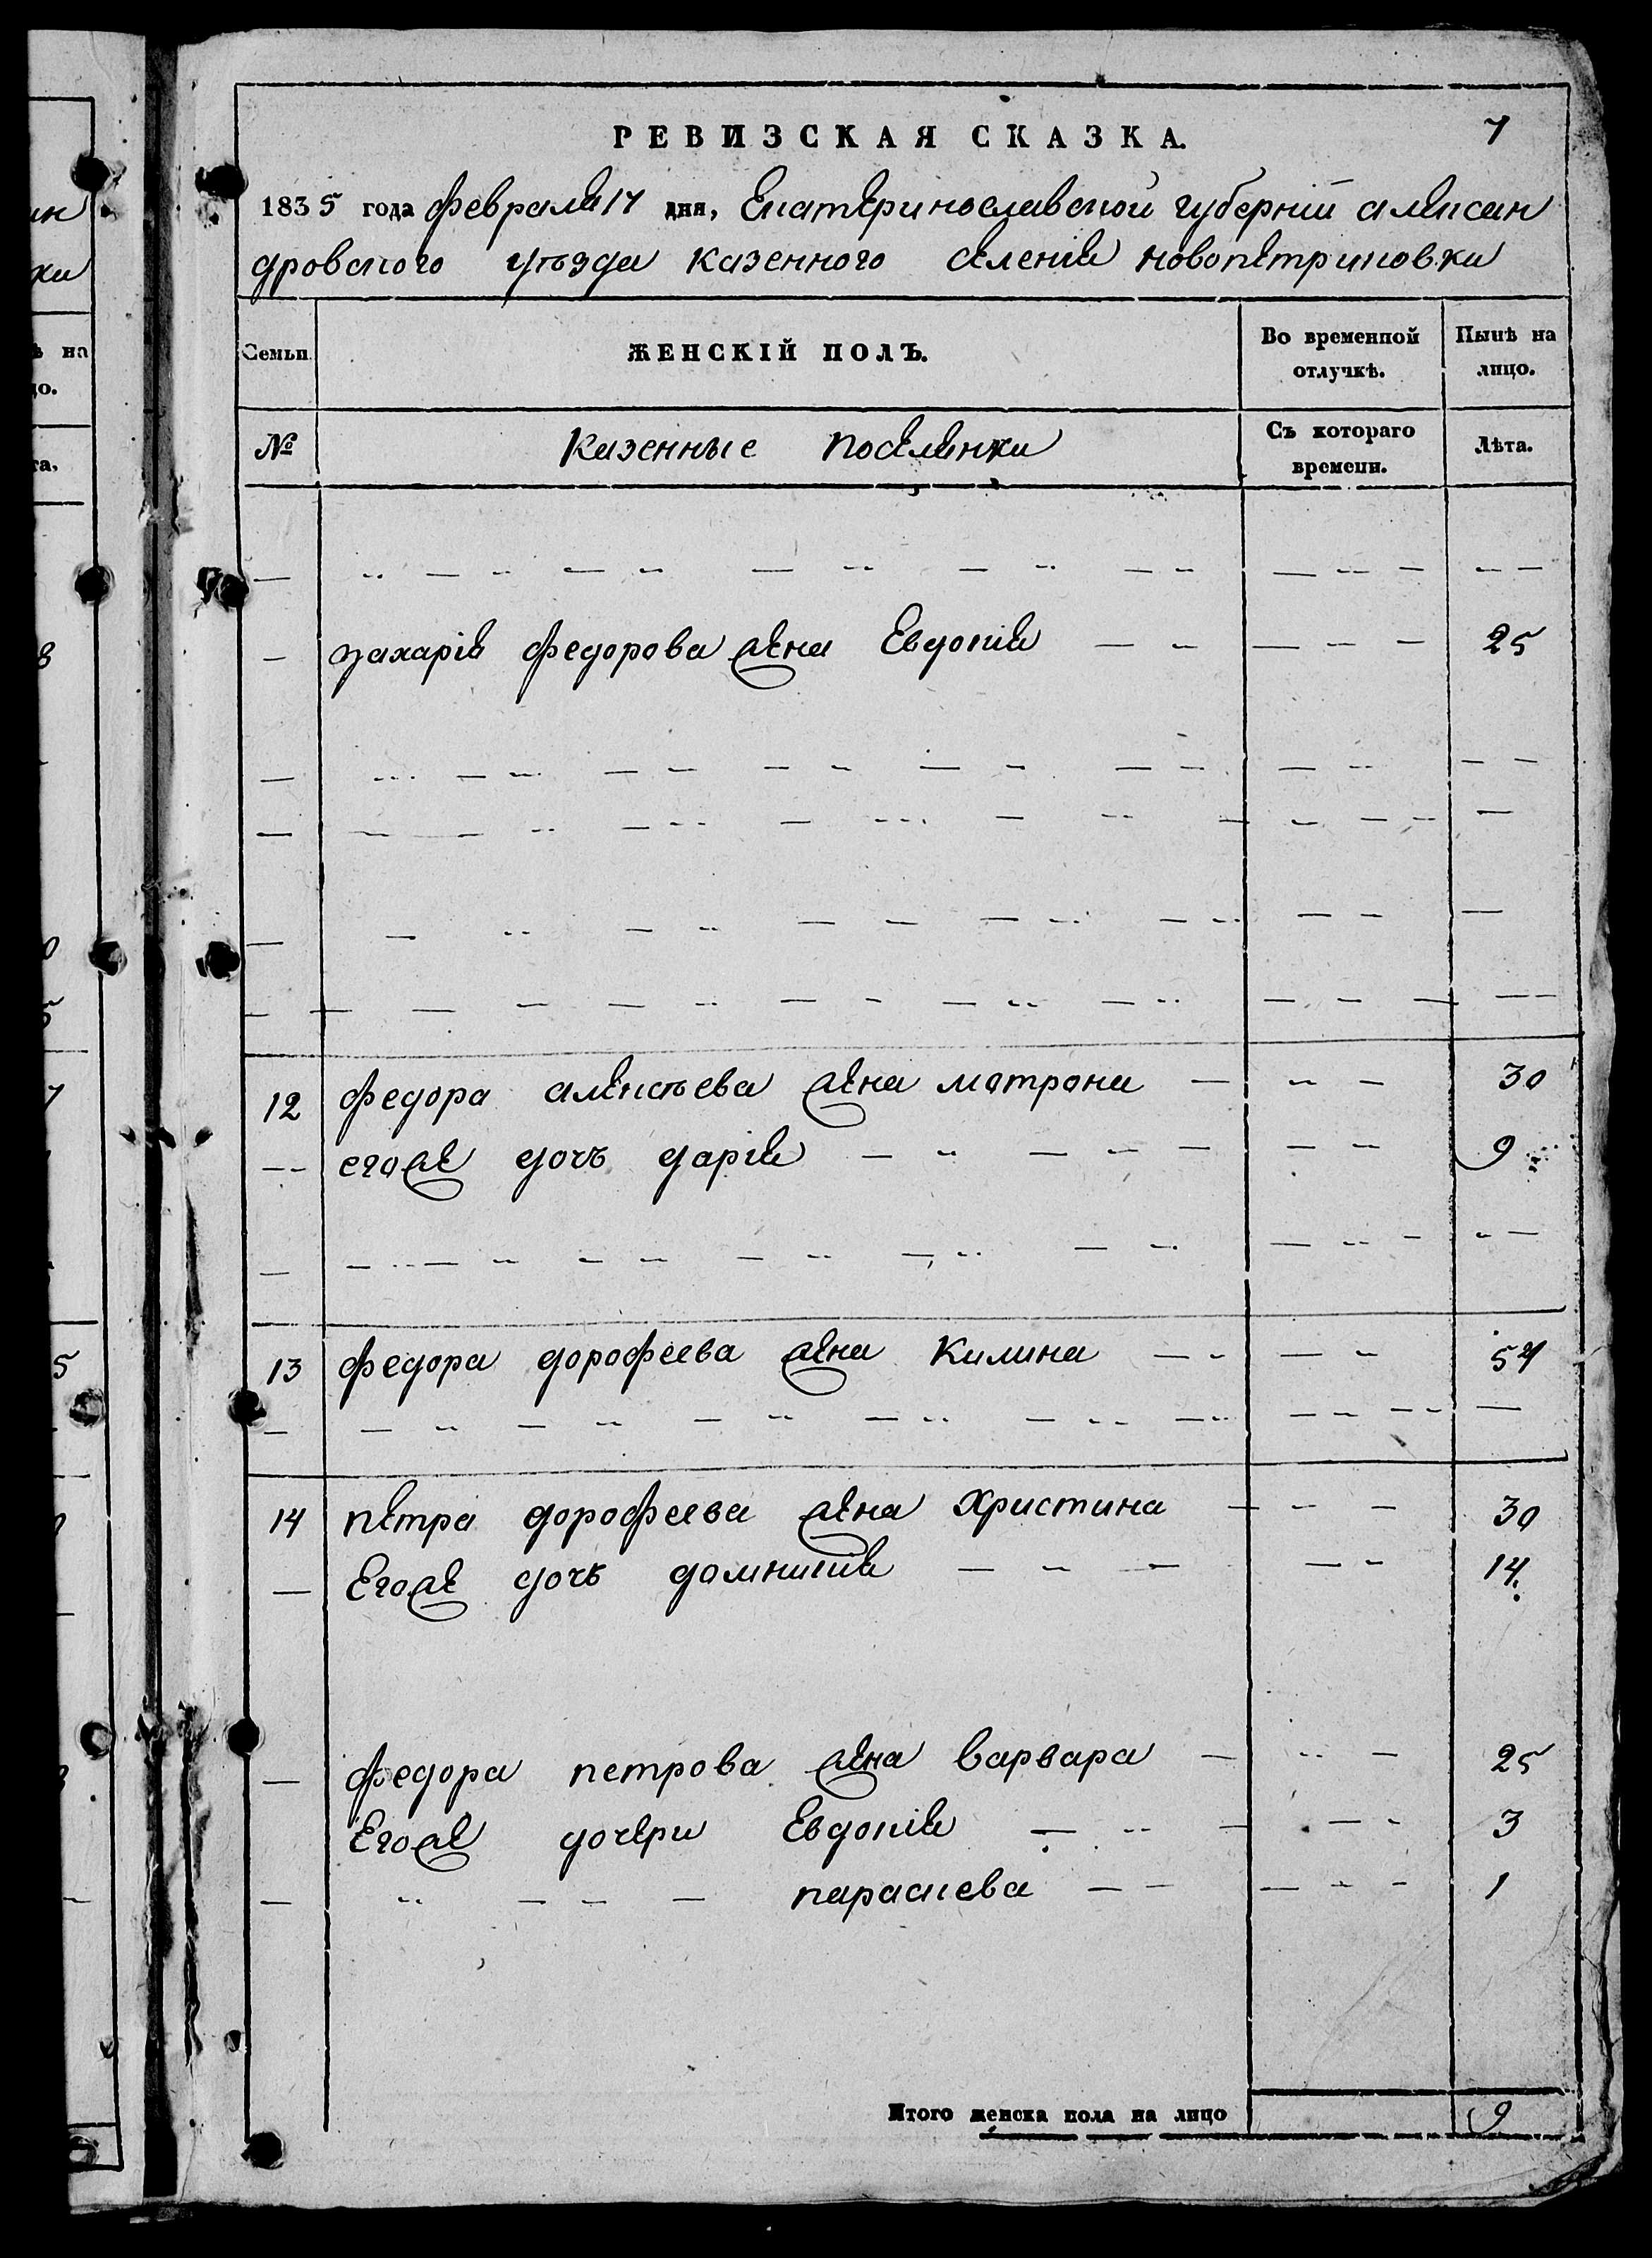 РЕВИЗСКАЯ СКАЗКА. 7
1835 года февраля 17 дня, Екатеринославской губерніи алексан
дровского уѣзда казенного селенія новопетриковки
Семьи. ЖЕНСКІЙ ПОЛЪ. Во временной отлучкѣ. Нынѣ на лицо.
№ Казенные поселянки Съ котораго времени. Лѣта.
захарія федорова жена Евдокія 25
12 федора алексѣева жена матрона 30
егоже дочь дарія 9
13 федора дорофеева жена Килина 54
14 петра дорофеева жена Христина 30
Егоже дочь домникія 14
федора петрова жена варвара 25
Егоже дочери Евдокія 3
параскева 1
Итого женска пола на лицо 9